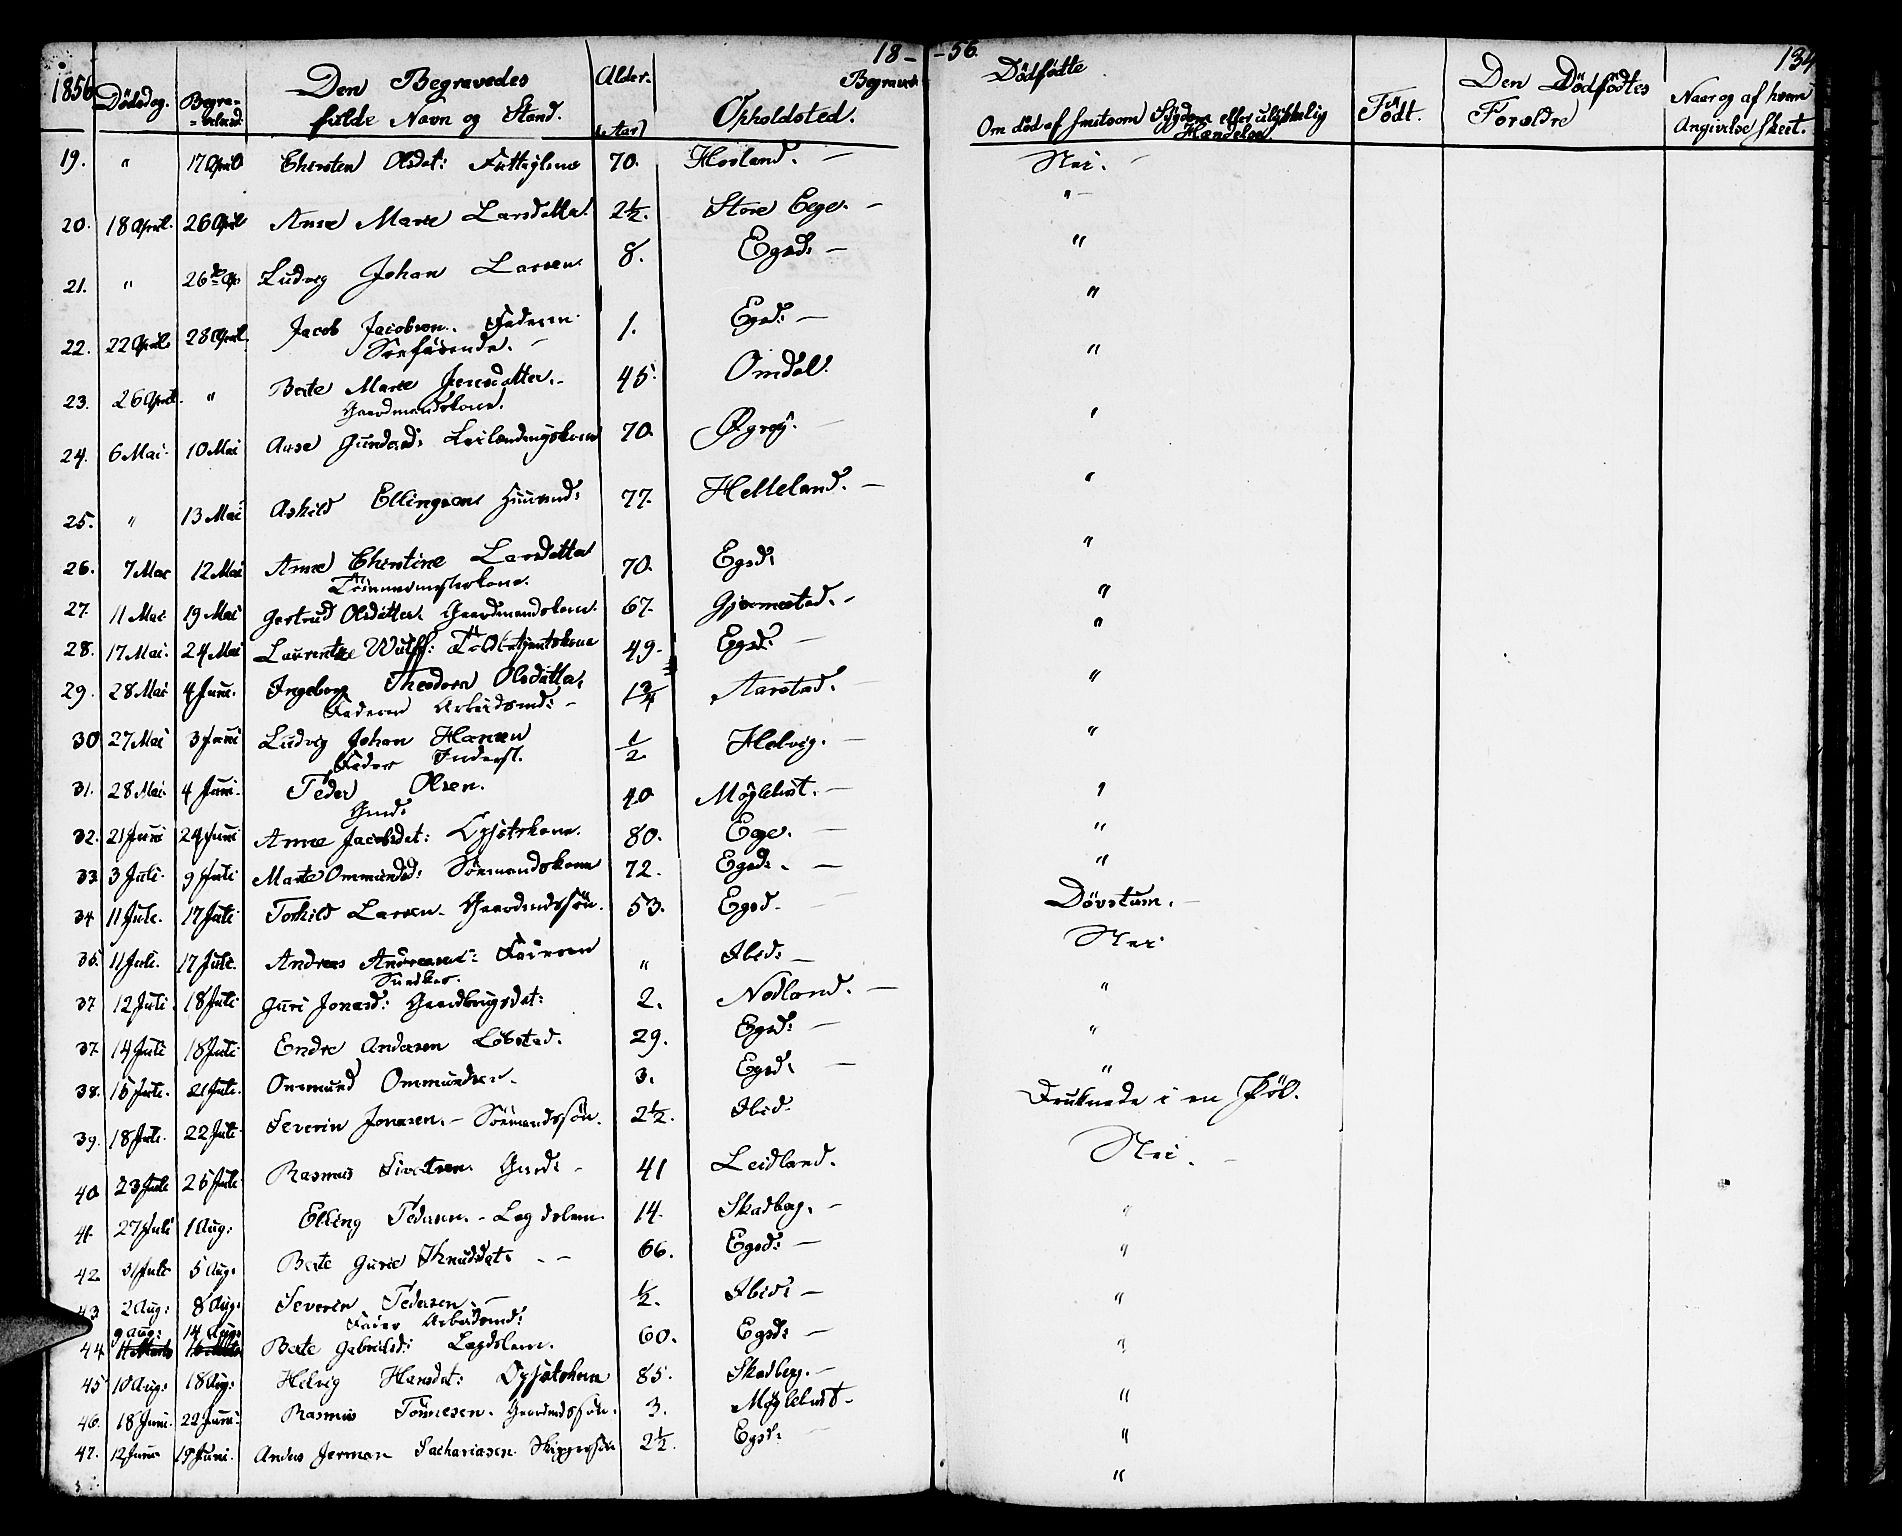 18 - - 56. 134
1856 Dödsdag. Begra- Den Begravedes Alder. Begraved Dödfödte Den Dödfödtes
= velsesd. fulde Navn og Stand. (Aar) Opholdsted. Om död af smitsom Sygdom eller ulykkelig Hændelse Födt. Forældre Naar og af hvem Angivelse skeet.
19. " 17 April Christen Olsdat: Fattiglem 70. Hovland. — Nei. —
20. 18 April. 26 April Anne Marie Larsdatter 2½. Store Eege. — " —
21. " 26de Ap Ludvig Johan Larsen. 8. Egsd: — "
22. 22 April 28 April. Jacob Jacobsen. Faderen 1. Egsd: — "
Söefarende. —
23. 26 April. " Berte Marie Jensdatter. 45. Omdal. "
Gaardmandskone.
24. 6 Mai. 10 Mai Aase Gundersd: Leilændingskone 70. Øgrøy. "
25. " 13 Mai Askild Ellingsen Huusmd: 77. Helleland. — "
26. 7 Mai 12 Mai Anne Christine Larsdatter 70. Egsd: "
Tömmermesterkone.
27. 11 Mai 19 Mai Gertrud Olsdatter Gaardmandskone. 67. Gjermestad. — "
28. 17 Mai. 24 Mai Laurentze Wulff: Toldbetjentskone 49. Egsd: — "
29. 28 Mai 4 Juni. Ingeborg Theodora Olsdatter. 1¾ Aarstad. — "
Faderen Arbeidsmd: —
30 27 Mai 3 Juni Ludvig Johan Hansen ½ Helvig. — "
Fader Inderst.
31. 28 Mai 4 Juni. Peder Olsen. 40 Møglebust. — "
Gmd:
32. 21 Juni 24 Juni Anne Jacobsdat: Opsidderkone. 80. Ege. — "
33 3 Juli. 9 Juli Marte Ommundsd: Sömandskone 72. Egsd: — "
34 11 Juli. 17 Juli Torkild Larsen. Gaardmdssön. 53. Egsd. Dövstum. —
35. 11 Juli. 17 Juli. Andreas Andreasen: Faderen " Ibid: — Nei
Snedker.
37 12 Juli. 18 Juli Guri Jonasd: Gaardbrugsdat: 2. Nodland. — "
37. 14 Juli 18 Juli Endre Andersen Löbsted. 29. Egsd: — "
38. 15 Juli. 21 Juli. Ommund Ommundsen. 3. Egsd: — "
39. 18 Juli. 22 Juli Severin Jonasen. — Sömandssön. 2½. Ibid. Druknede i en Pöl.
40. 23 Juli 26 Juli Rasmus Sivertsen Gmd: — 41 Leidland. Nei. —
41. 27 Juli 1 Aug: Elling Pedersen. - Lægdslem. 14. Skadberg. — "
42. 31 Juli 5 Aug: Berte Gurie Knudsdat: — 66. Egsd: — "
43 2 Aug: 8 Aug: Severin Pedersen. — ½. Ibid: — "
Fader Arbeidsmd:
9 Aug: 14 Aug:
44 Berte Gabrielsd: Lægdslem. 60. Egsd: — "
45 10 Aug: 18 Aug: Helvig Hansdat: Opsidderkone 85. Skadberg. —
46. 18 Juni. 22 Juni. Rasmus Tönnesen. Gaardmdssön. 3. Møglebust — "
47. 12 Juni 19 Juni. Andus Jerman Sachariasen Skipperssön 2½. Egsd: "
"